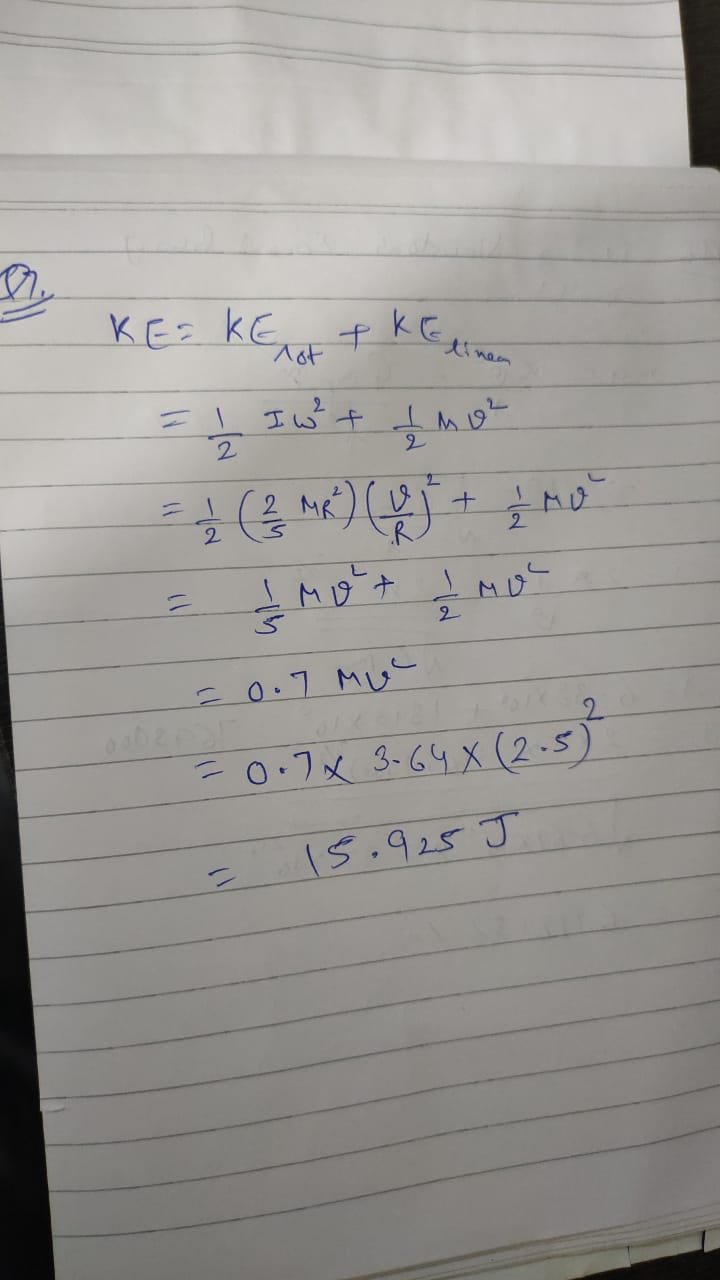 Q7.
KE = KE rot + KE linear
= 1/2 Iω² + 1/2 Mv²
= 1/2 (2/5 MR²) (v/R)² + 1/2 Mv²
= 1/5 Mv² + 1/2 Mv²
= 0.7 Mv²
= 0.7 x 3.64 x (2.5)²
= 15.925 J